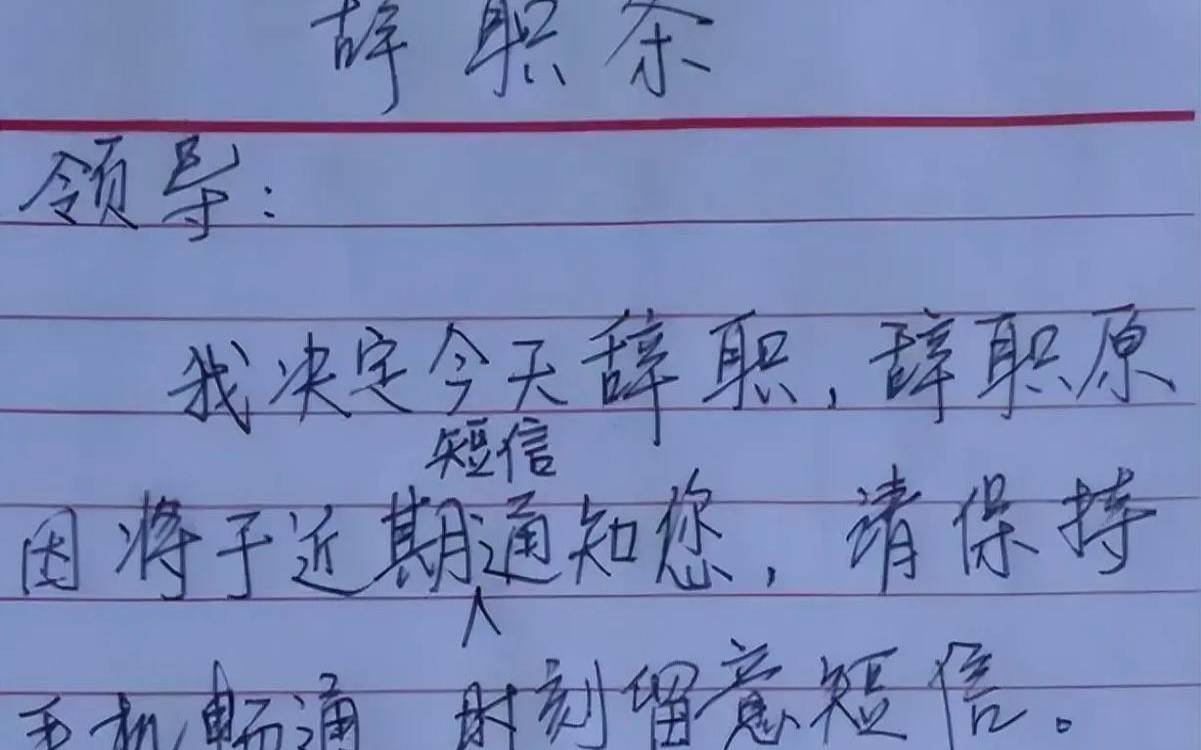 辞职条
领导：
我决定今天辞职，辞职原
因将于近期短信通知您，请保持
手机畅通 时刻留意短信。